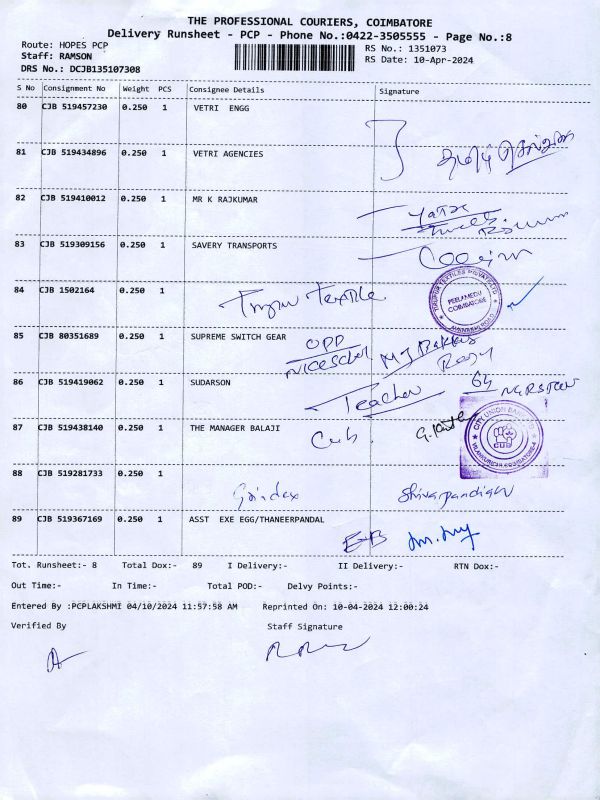 THE PROFESSIONAL COURIERS, COIMBATORE
Delivery Runsheet - PCP - Phone No.:0422-3505555 - Page No.:8
Route: HOPES PCP RS No.: 1351073
Staff: RAMSON RS Date: 10-Apr-2024
DRS No.: DCJB135107308
S No Consignment No Weight PCS Consignee Details Signature
80 CJB 519457230 0.250 1 VETRI ENGG
81 CJB 519434896 0.250 1 VETRI AGENCIES
82 CJB 519410012 0.250 1 MR K RAJKUMAR
83 CJB 519309156 0.250 1 SAVERY TRANSPORTS
84 CJB 1502164 0.250 1
Textile
TIRUPUR TEXTILES PRIVATE LTD
PEELAMEDU
COIMBATORE
AVANASHI ROAD
85 CJB 80351689 0.250 1 SUPREME SWITCH GEAR
OPP
86 CJB 519419062 0.250 1 SUDARSON
Teacher 64
87 CJB 519438140 0.250 1 THE MANAGER BALAJI
Cub.
CITY UNION BANK LTD
88 CJB 519281733 0.250 1
Shivapandian
89 CJB 519367169 0.250 1 ASST EXE EGG/THANEERPANDAL
EB
Tot. Runsheet:- 8 Total Dox:- 89 I Delivery:- II Delivery:- RTN Dox:-
Out Time:- In Time:- Total POD:- Delvy Points:-
Entered By :PCPLAKSHMI 04/10/2024 11:57:58 AM Reprinted On: 10-04-2024 12:00:24
Verified By Staff Signature